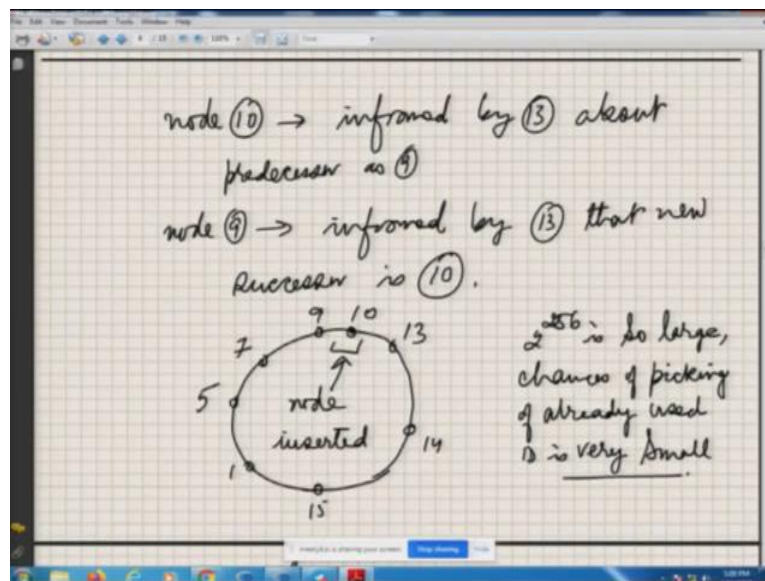 File Edit View Document Tools Window Help
node 10 → infromed by 13 about
predecessor as 9
node 9 → infromed by 13 that new
successor is 10.
9 10
7 13
5 node
inserted 14
1
15
2^256 is so large,
chances of picking
of already used
ID is very small
Stop sharing Hide